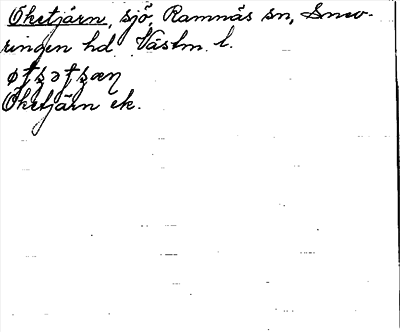 Öketjärn, sjö, Ramnäs sn, Snev-
ringen hd Västm. l.
Öketjärn ek.